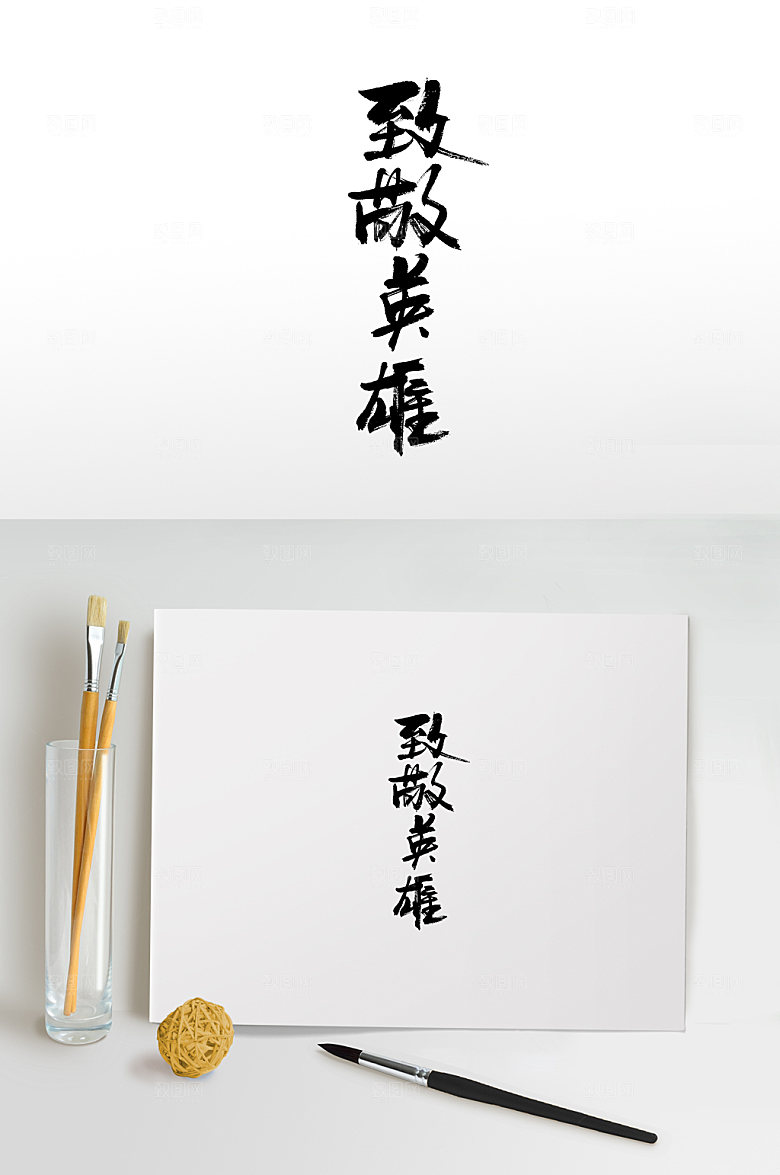 致敬英雄
致敬英雄